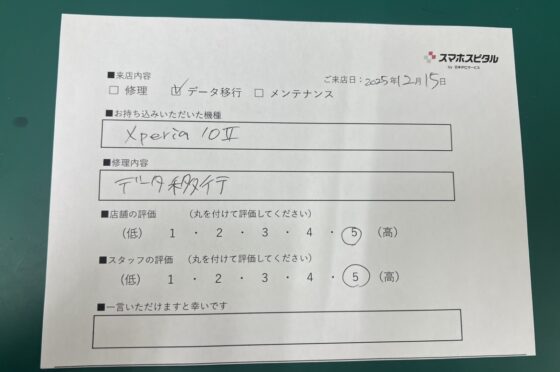 スマホスピタル
by 日本PCサービス
ご来店日：2025年12月15日
■来店内容
□ 修理 ☑ データ移行 □ メンテナンス
■お持ち込みいただいた機種
Xperia 10Ⅱ
■修理内容
データ移行
■店舗の評価 （丸を付けて評価してください）
（低） 1 ・ 2 ・ 3 ・ 4 ・ 5 （高）
■スタッフの評価 （丸を付けて評価してください）
（低） 1 ・ 2 ・ 3 ・ 4 ・ 5 （高）
■一言いただけますと幸いです